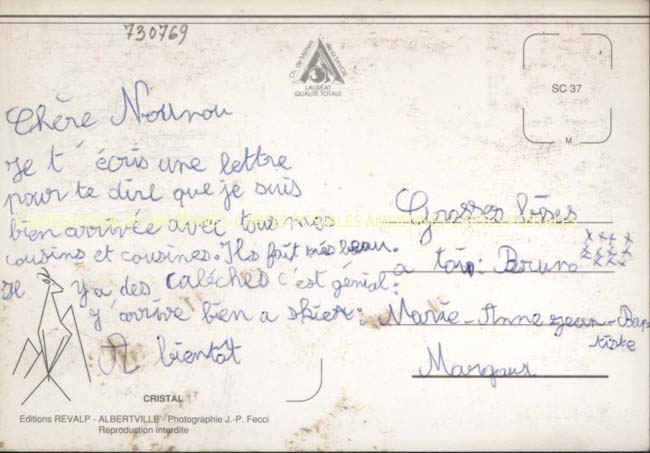 730769
Ch. de Métiers de la SAVOIE
LAURÉAT
QUALITÉ TOTALE
SC 37
M
Chère Nounou
Je t'écris une lettre
pour te dire que je suis
bien arrivée avec tous mes
cousins et cousines. Ils fait très beau.
Il y a des calèches c'est génial.
J'arrive bien a skier.
A bientôt
Grosses bises
a toi: Bruno xxxx xxxx
Marie-Anne Jean-Bap
tiste
Margaux
CRISTAL
Editions REVALP - ALBERTVILLE - Photographie J.-P. Fecci
Reproduction interdite